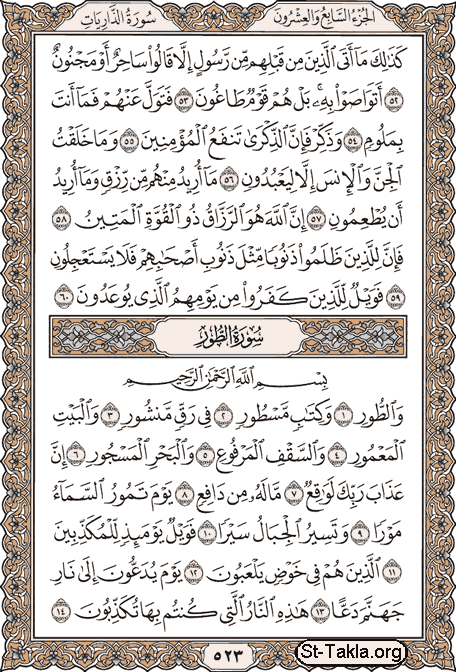 الجزء السابع والعشرون
سورة الذاريات
كَذَٰلِكَ مَآ أَتَى ٱلَّذِينَ مِن قَبۡلِهِم مِّن رَّسُولٍ إِلَّا قَالُواْ سَاحِرٌ أَوۡ مَجۡنُونٌ
٥٢ أَتَوَاصَوۡاْ بِهِۦۚ بَلۡ هُمۡ قَوۡمٞ طَاغُونَ ٥٣ فَتَوَلَّ عَنۡهُمۡ فَمَآ أَنتَ
بِمَلُومٖ ٥٤ وَذَكِّرۡ فَإِنَّ ٱلذِّكۡرَىٰ تَنفَعُ ٱلۡمُؤۡمِنِينَ ٥٥ وَمَا خَلَقۡتُ
ٱلۡجِنَّ وَٱلۡإِنسَ إِلَّا لِيَعۡبُدُونِ ٥٦ مَآ أُرِيدُ مِنۡهُم مِّن رِّزۡقٖ وَمَآ أُرِيدُ
أَن يُطۡعِمُونِ ٥٧ إِنَّ ٱللَّهَ هُوَ ٱلرَّزَّاقُ ذُو ٱلۡقُوَّةِ ٱلۡمَتِينُ ٥٨
فَإِنَّ لِلَّذِينَ ظَلَمُواْ ذَنُوبٗا مِّثۡلَ ذَنُوبِ أَصۡحَٰبِهِمۡ فَلَا يَسۡتَعۡجِلُونِ
٥٩ فَوَيۡلٞ لِّلَّذِينَ كَفَرُواْ مِن يَوۡمِهِمُ ٱلَّذِي يُوعَدُونَ ٦٠
سورة الطور
بِسۡمِ ٱللَّهِ ٱلرَّحۡمَٰنِ ٱلرَّحِيمِ
وَٱلطُّورِ ١ وَكِتَٰبٖ مَّسۡطُورٖ ٢ فِي رَقّٖ مَّنشُورٖ ٣ وَٱلۡبَيۡتِ
ٱلۡمَعۡمُورِ ٤ وَٱلسَّقۡفِ ٱلۡمَرۡفُوعِ ٥ وَٱلۡبَحۡرِ ٱلۡمَسۡجُورِ ٦ إِنَّ
عَذَابَ رَبِّكَ لَوَٰقِعٞ ٧ مَّا لَهُۥ مِن دَافِعٖ ٨ يَوۡمَ تَمُورُ ٱلسَّمَآءُ
مَوۡرٗا ٩ وَتَسِيرُ ٱلۡجِبَالُ سَيۡرٗا ١٠ فَوَيۡلٞ يَوۡمَئِذٖ لِّلۡمُكَذِّبِينَ
١١ ٱلَّذِينَ هُمۡ فِي خَوۡضٖ يَلۡعَبُونَ ١٢ يَوۡمَ يُدَعُّونَ إِلَىٰ نَارِ
جَهَنَّمَ دَعًّا ١٣ هَٰذِهِ ٱلنَّارُ ٱلَّتِي كُنتُم بِهَا تُكَذِّبُونَ ١٤
٥٢٣
St-Takla.org